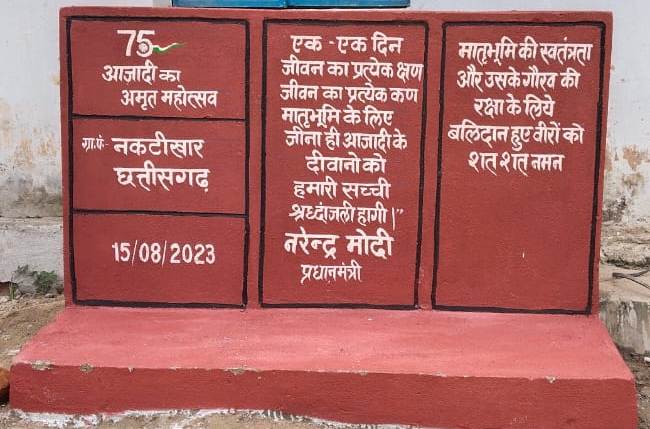 75
आज़ादी का
अमृत महोत्सव
ग्रा.पं- नकटीखार
छत्तीसगढ़
15/08/2023
एक - एक दिन
जीवन का प्रत्येक क्षण
जीवन का प्रत्येक कण
मातृभूमि के लिए
जीना ही आजादी के
दीवानो को
हमारी सच्ची
श्रध्दांजली हागी।"
नरेन्द्र मोदी
प्रधानमंत्री
मातृभूमि की स्वतंत्रता
और उसके गौरव की
रक्षा के लिये
बलिदान हुए वीरों को
शत शत नमन